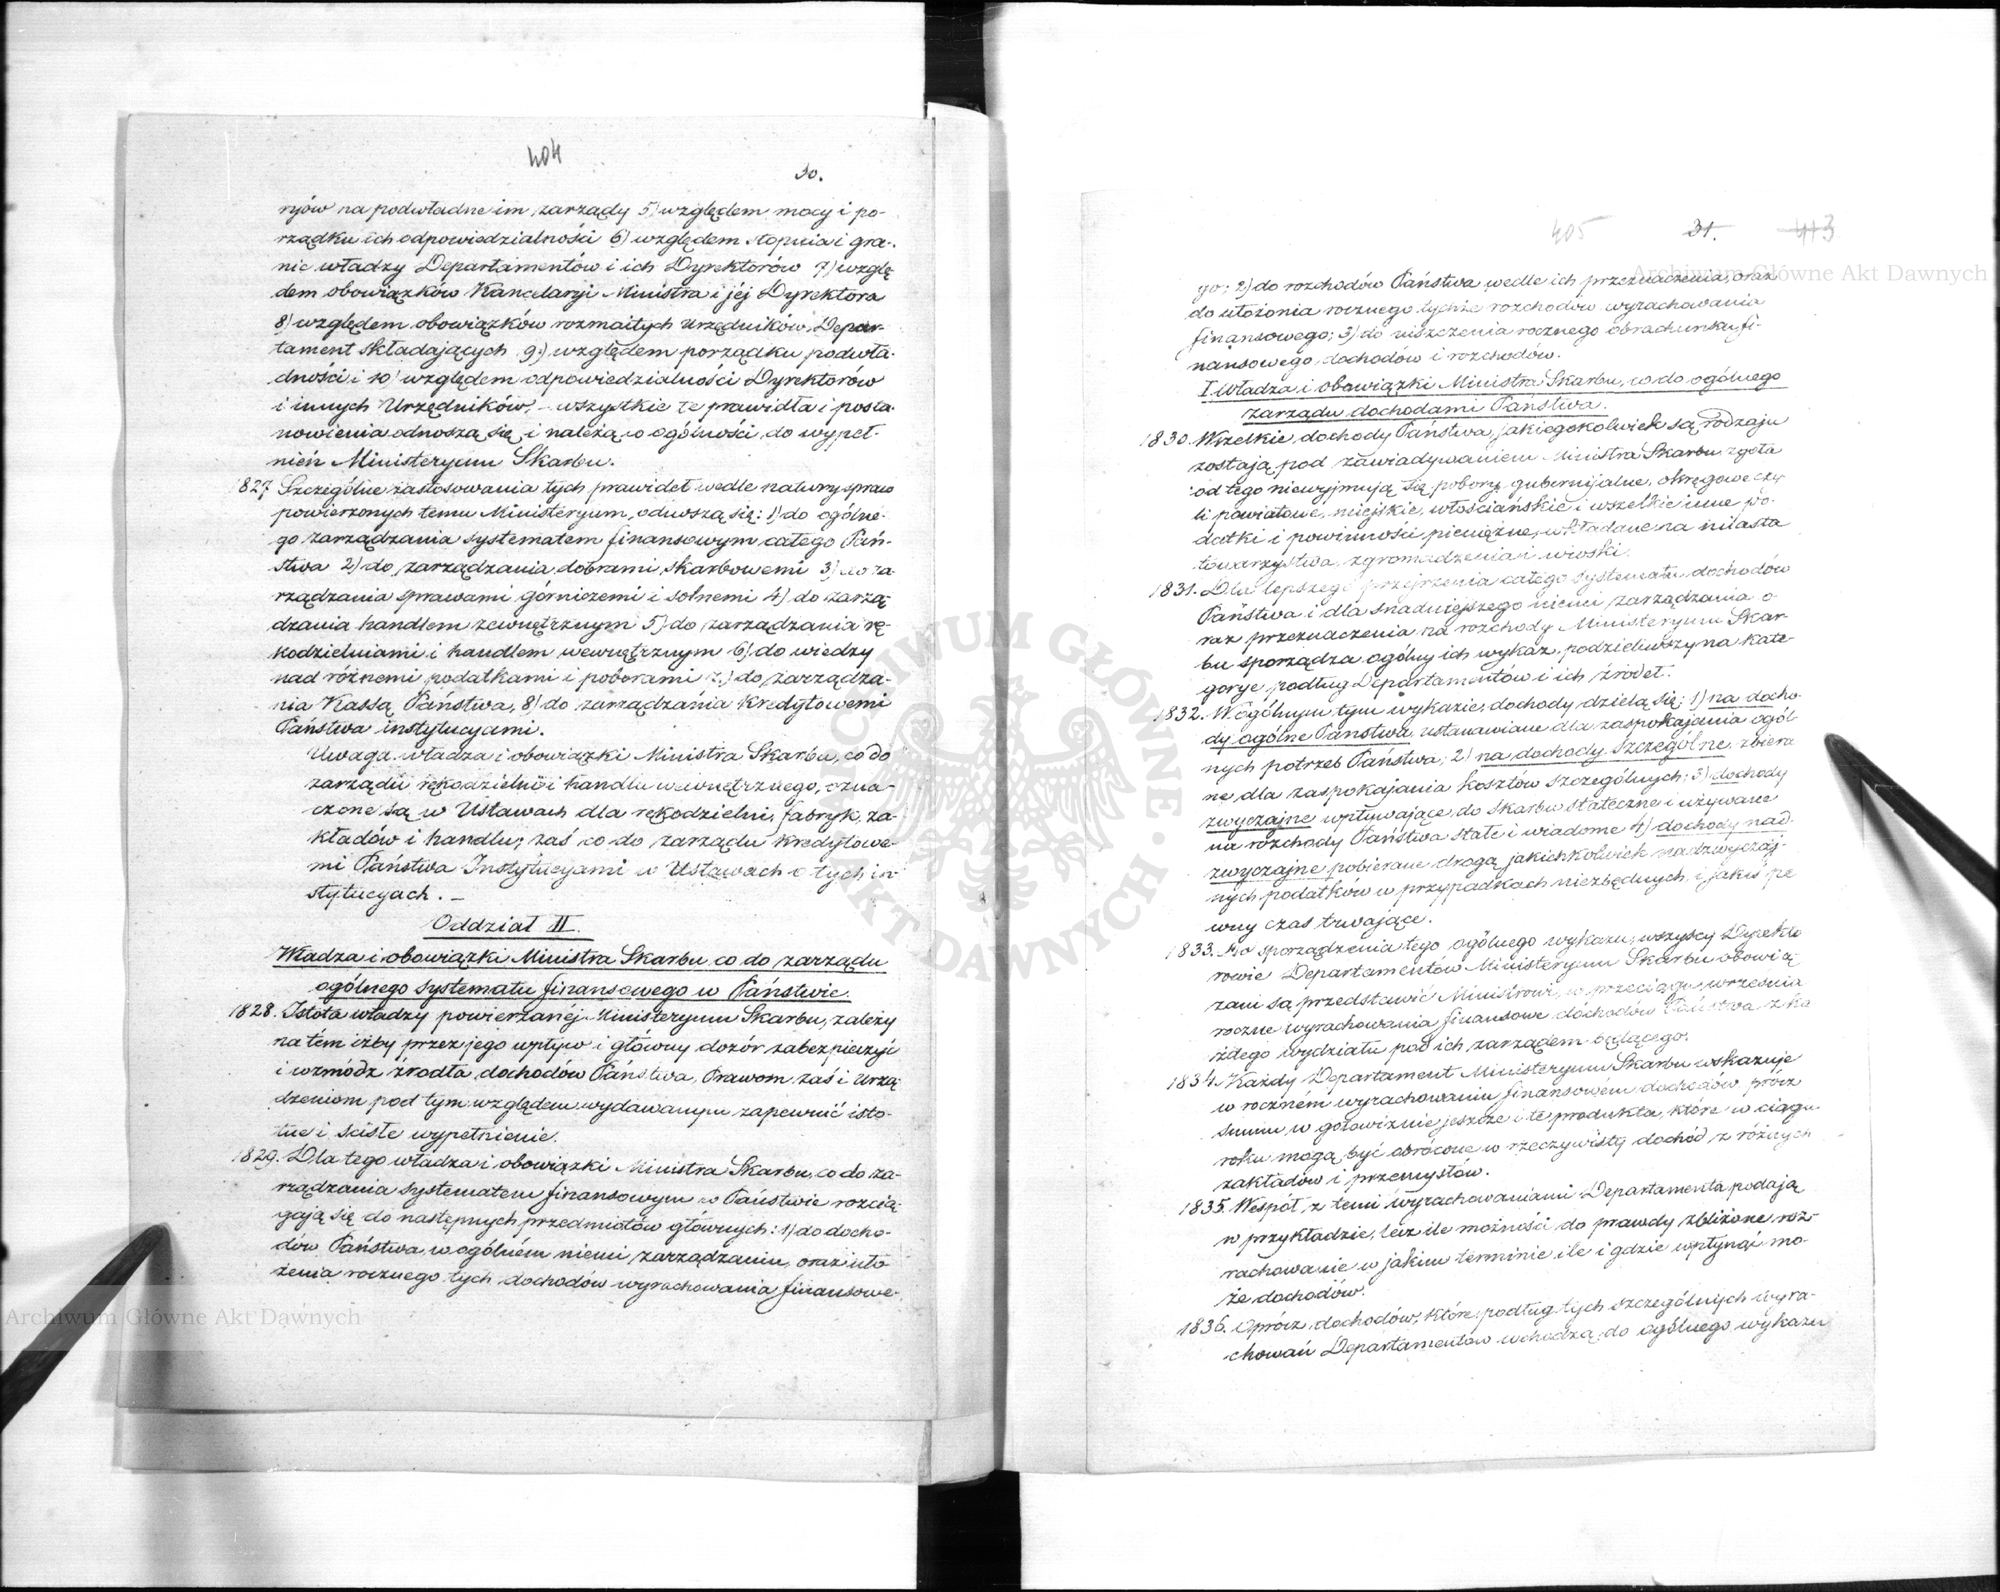 404
30.
ryjów na podwładne im zarządy 5) względem mocy i po-
rządku ich odpowiedzialności 6) względem stopnia i gra-
nic władzy Departamentów i ich Dyrektorów 7) wzglę
dem obowiązków Kancelaryi Ministra i jéj Dyrektora
8) względem obowiązków rozmaitych urzędników, Depar-
tament składających 9.) względem porządku podwła-
dności i 10) względem odpowiedzialności Dyrektorów
i innych Urzędników, – wszystkie te prawidła i posta-
nowienia odnoszą się i należą w ogólności do wypeł-
nień Ministeryum Skarbu.
1827 Szczególne zastosowania tych prawideł wedle natury spraw
powierzonych temu Ministeryum, odnoszą się: 1) do ogólne-
go zarządzania systematem finansowym całego Pań-
stwa 2) do zarządzania dobrami skarbowemi 3) do za-
rządzania sprawami górniczemi i solnemi 4) do zarzą-
dzania handlem zewnętrznym 5) do zarządzania rę-
kodzielniami i handlem wewnętrznym 6) do wiedzy
nad różnemi podatkami i poborami 7.) do zarządza-
nia Kassą Państwa, 8) do zarządzania Kredytowemi
Państwa instytucyami.
Uwaga. władza i obowiązki Ministra Skarbu, co do
zarządu rękodzielni i handlu wewnętrznego, ozna-
czone są w Ustawach dla rękodzielni, fabryk, za-
kładów i handlu, zaś co do zarządu Kredytowe-
mi Państwa Instytucyami w Ustawach o tych in
stytucyach. –
Oddział II.
Władza i obowiązki Ministra Skarbu co do zarządu
ogólnego systematu finansowego w Państwie.
1828. Istota władzy powierzanéj Ministeryum Skarbu, zależy
na tém iżby przez jego wpływ i główny dozór zabezpieczyć
i wzmódz źródła dochodów Państwa, Prawom zaś i Urzą-
dzeniom pod tym względem wydawanym zapewnić isto-
tne i ścisłe wypełnienie.
1829. Dla tego władza i obowiązki Ministra Skarbu, co do za-
rządzania systematem finansowym w Państwie rozcią-
gają się do następnych przedmiotów głównych: 1) do docho-
dów Państwa, w ogólném niemi zarządzaniu, oraz uło
żenia rocznego tych dochodów wyrachowania finansowe-
405 31. 413
go; 2) do rozchodów Państwa wedle ich przeznaczenia, oraz
do ułożenia rocznego tychże rozchodów wyrachowania
finansowego; 3) do uiszczenia rocznego obrachunku fi-
nansowego, dochodów i rozchodów.
I. Władza i obowiązki Ministra Skarbu, co do ogólnego
zarządu dochodami Państwa.
1830. Wszelkie dochody Państwa, jakiegokolwiek są rodzaju
zostają pod zawiadywaniem Ministra Skarbu, zgoła
od tego niewyjmują się pobory gubernijalne, okręgowe czy
li powiatowe, miejskie, włościańskie i wszelkie inne po-
datki i powinności pieniężne, wkładane na miasta
towarzystwa, zgromadzenia i wioski.
1831. Dla lepszego przejrzenia całego systematu dochodów
Państwa i dla snadniejszego niemi zarządzania o-
raz przeznaczenia na rozchody Ministeryum Skar-
bu sporządza ogólny ich wykaz, podzieliwszy na kate-
gorye podług Departamentów i ich źródeł.
1832. W ogólnym tym wykazie, dochody dzielą się: 1) na docho-
dy ogólne Państwa, ustanawiane dla zaspokajania ogól
nych potrzeb Państwa; 2) na dochody szczególne, zbiera
ne dla zaspokajania kosztów szczególnych; 3) dochody
zwyczajne wpływające do Skarbu statecznie i używane
na rozchody Państwa stałe i wiadome 4) dochody nad-
zwyczajne pobierane drogą jakichkolwiek nadzwyczaj-
nych podatków w przypadkach niezbędnych, i jakiś pe
wny czas trwające.
1833. Do sporządzenia tego ogólnego wykazu, wszyscy Dyrekto
rowie Departamentów Ministeryum Skarbu obowią
zani są przedstawić Ministrowi, w przeciągu września
roczne wyrachowania finansowe dochodów Państwa z ka
żdego wydziału pod ich zarządem będącego.
1834. Każdy Departament Ministeryum Skarbu wskazuje
w roczném wyrachowaniu finansowém dochodów, prócz
summ w gotowiznie jeszcze i te produkta, które w ciągu
roku mogą być obrócone w rzeczywistą dochód z różnych
zakładów i przemysłów.
1835. Wespół z temi wyrachowaniami Departamenta podają
w przykładzie, lecz ile możności do prawdy zbliżone roz-
rachowanie w jakim terminie ile i gdzie wpłynąć mo-
że dochodów.
1836. Oprócz dochodów, które podług tych szczególnych wyra-
chowań Departamentów wchodzą do ogólnego wykazu
Archiwum Główne Akt Dawnych
Archiwum Główne Akt Dawnych
ARCHIWUM GŁÓWNE AKT DAWNYCH